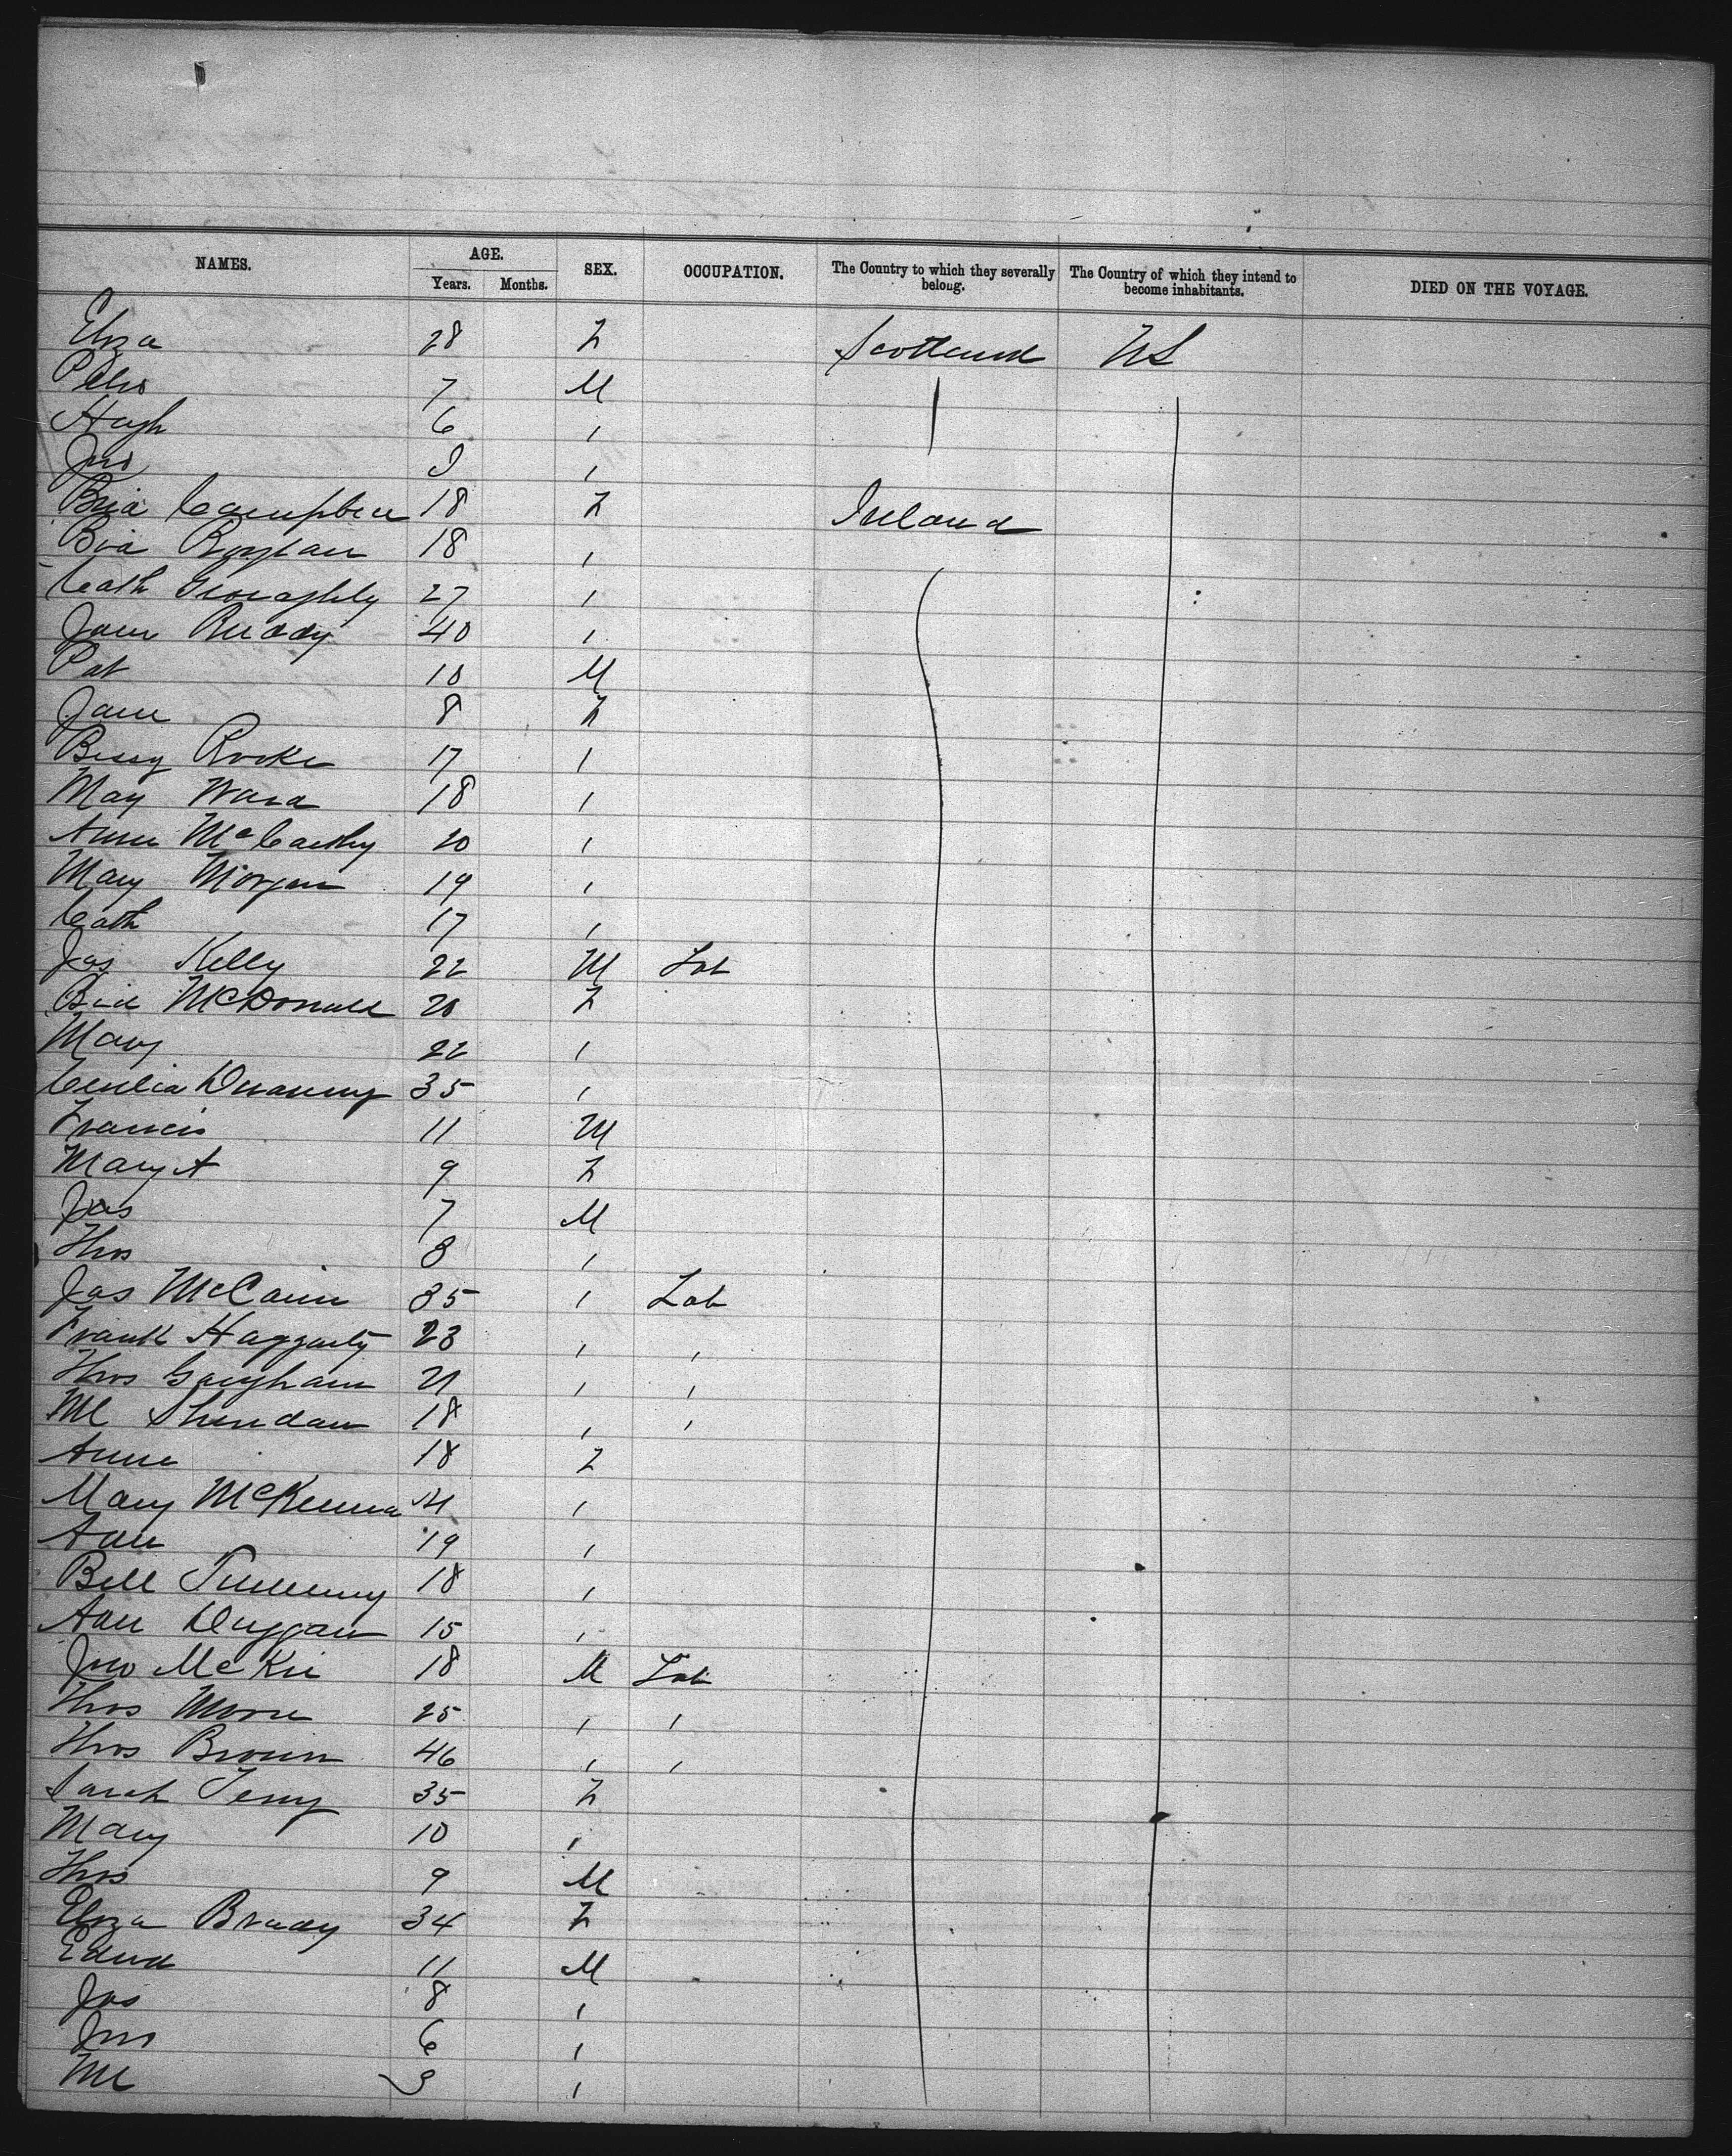 NAMES. AGE. Years. Months. SEX. OCCUPATION. The Country to which they severally belong. The Country of which they intend to become inhabitants. DIED ON THE VOYAGE.
Eliza 28 F Scotland US
7 M
Hugh 6 "
Jno "
Campbell 18 F Ireland
18 "
Cath 27 "
Jane Ruddy 40 "
Pat 10 M
Jane 8 F
Bessy Rooke 17 "
May Ward 18 "
Anne McCarthy 20 "
Mary Morgan 19 "
Cath 17 "
Jas Kelly 22 M Lab
McDonald 20 F
Mary 22 "
Cecilia 35 "
Francis 11 M
Mary A 9 F
Jas 7 M
Thos 3 "
Jas McCann 35 " Lab
Frank Haggarty 23 " "
Thos Gaughan 21 " "
Ml Sheridan 18 " "
Anne 18 F
Mary McKenna "
Ann 19 "
Bell 18 "
Ann Duggan 15 "
Jno McKee 18 M Lab
Thos Moore 25 " "
Thos Brown 46 " "
Sarah Terry 35 F
Mary 10 "
Thos 9 M
Eliza Brady 34 F
Edwd 11 M
Jas 8 "
Jno 6 "
Ml 3 "